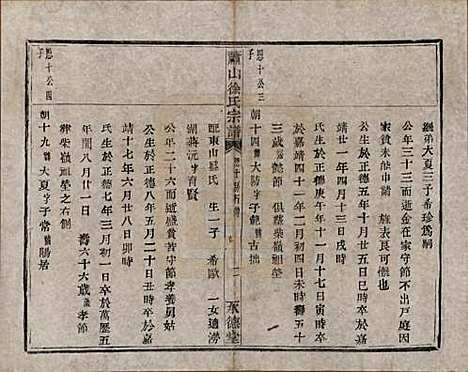 恩十公三子
繼弟大夏三子希珍為嗣
公年三十三而逝金在家守節不出戶庭因
家貧未能申請 旌表良可慨也
公生於正德五年十月廿五日巳時卒於嘉
靖廿一年四月十三日戌時
氏生於正德庚午年十一月十七日寅時卒
於嘉靖四十一年二月初三日未時壽五十
三歲 節 俱葬柴嶺祖塋
朝十四 大 字子 號古拙
蕭山徐氏宗譜
永德堂
配東山 氏 生一子 希歐 一女適澇
湖蔣沅 字育賢
公年二十六而逝盛貧苦守節孝養舅姑
公生於正德八年五月二十日丑時卒於嘉
靖十七年六月廿八日卯時
氏生於正德七年三月初一日卒於萬歷五
年閏八月廿一日 壽六十六歲 孝節
葬柴嶺祖塋之右側
朝十九 大夏 字子常 號陽居
恩十公四子